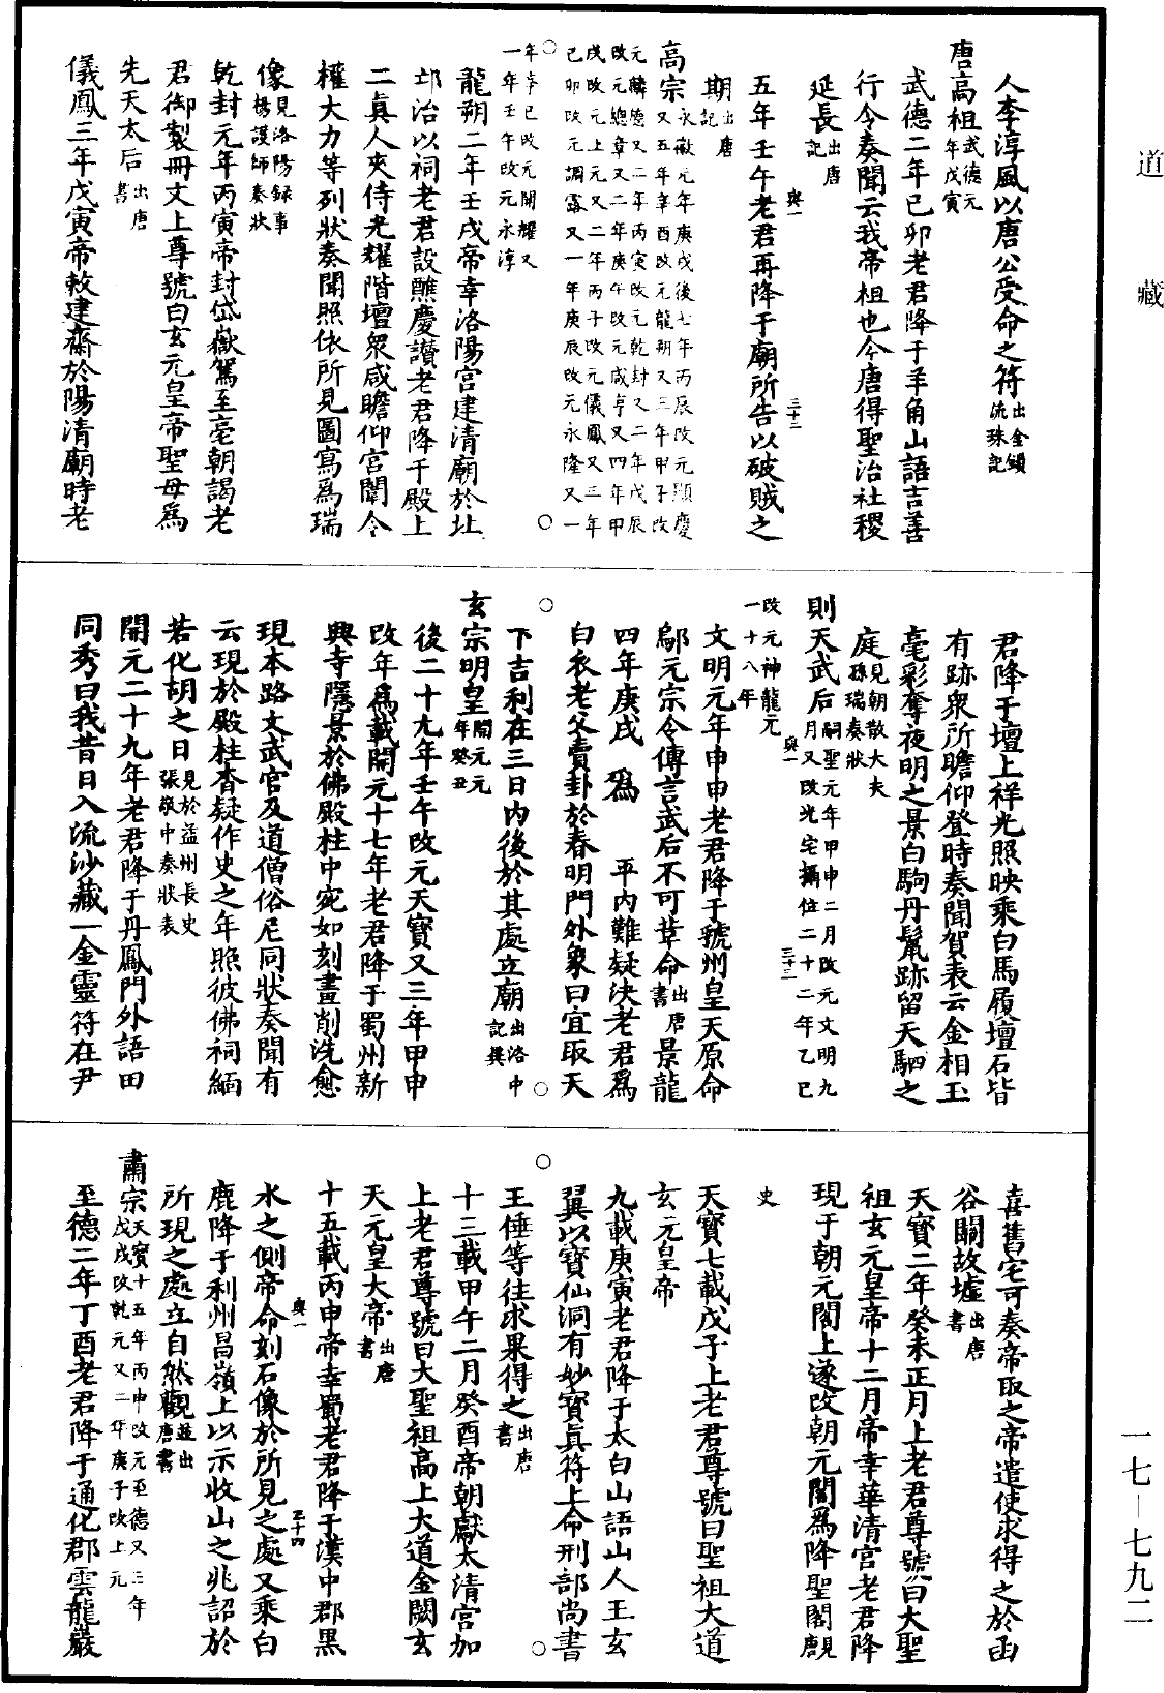 道藏
人李淳風以唐公受命之符出金鎖流珠記
唐高祖武德元年戊寅
武德二年己卯老君降于羊角山語吉善
行令奏聞云我帝祖也今唐得聖治社稷
延長出唐記
與一
三十二
五年壬午老君再降于廟所告以破賊之
期出唐記
高宗永徽元年庚戌後七年丙辰改元顯慶
又五年辛酉改元龍朔又三年甲子改
元麟德又二年丙寅改元乾封又二年戊辰
改元總章又二年庚午改元咸亨又四年甲
戌改元上元又二年丙子改元儀鳳又三年
己卯改元調露又一年庚辰改元永隆又一
年辛巳改元開耀又
一年壬午改元永淳
龍朔二年壬戌帝幸洛陽宮建清廟於北
邙治以祠老君設醮慶讚老君降于殿上
二真人夾侍光耀階壇眾咸瞻仰宮闈令
權大力等列狀奏聞照依所見圖寫為瑞
像見洛陽録事楊護師奏狀
乾封元年丙寅帝封岱嶽駕至亳朝謁老
君御製冊文上尊號曰玄元皇帝聖母為
先天太后出唐書
儀鳳三年戊寅帝敕建齋於陽清廟時老
君降于壇上祥光照映乘白馬履壇石皆
有跡眾所瞻仰登時奏聞賀表云金相玉
毫彩奪夜明之景白駒丹鬣跡留天駟之
庭見朝散大夫孫瑞奏狀
與一
三十三
則天武后嗣聖元年甲申二月改元文明九
月又改光宅攝位二十二年乙巳
改元神龍元
一十八年
文明元年甲申老君降于虢州皇天原命
鄔元宗令傳言武后不可革命出唐書景龍
四年庚戌為 平內難疑決老君為
白衣老父賣卦於春明門外象曰宜取天
下吉利在三日內後於其處立廟出洛中記異
玄宗明皇開元元年癸丑
後二十九年壬午改元天寶又三年甲申
改年為載開元十七年老君降于蜀州新
興寺隱景於佛殿柱中宛如刻畫削洗愈
現本路文武官及道僧俗尼同狀奏聞有
云現於殿柱杳疑作史之年照彼佛祠緬
若化胡之日見於益州長史張敬中奏狀表
開元二十九年老君降于丹鳳門外語田
同秀曰我昔日入流沙藏一金靈符在尹
喜舊宅可奏帝取之帝遣使求得之於函
谷關故墟出唐書
天寶二年癸未正月上老君尊號曰大聖
祖玄元皇帝十二月帝幸華清宮老君降
現于朝元閣上遂改朝元閣為降聖閣觀
史
天寶七載戊子上老君尊號曰聖祖大道
玄元皇帝
九載庚寅老君降于太白山語山人王玄
翼以寶仙洞有妙寶真符上命刑部尚書
王倕等往求果得之出唐書
十三載甲午二月癸酉帝朝獻太清宮加
上老君尊號曰大聖祖高上大道金闕玄
天元皇大帝出唐書
十五載丙申帝幸蜀老君降于漢中郡黑
與一
三十四
水之側帝命刻石像於所見之處又乘白
鹿降于利州昌嶺上以示收山之兆詔於
所現之處立自然觀並出唐書
肅宗天寶十五年丙申改元至德又三年
戊戌改乾元又二年庚子改上元
至德二年丁酉老君降于通化郡雲龍巖
一七－七九二